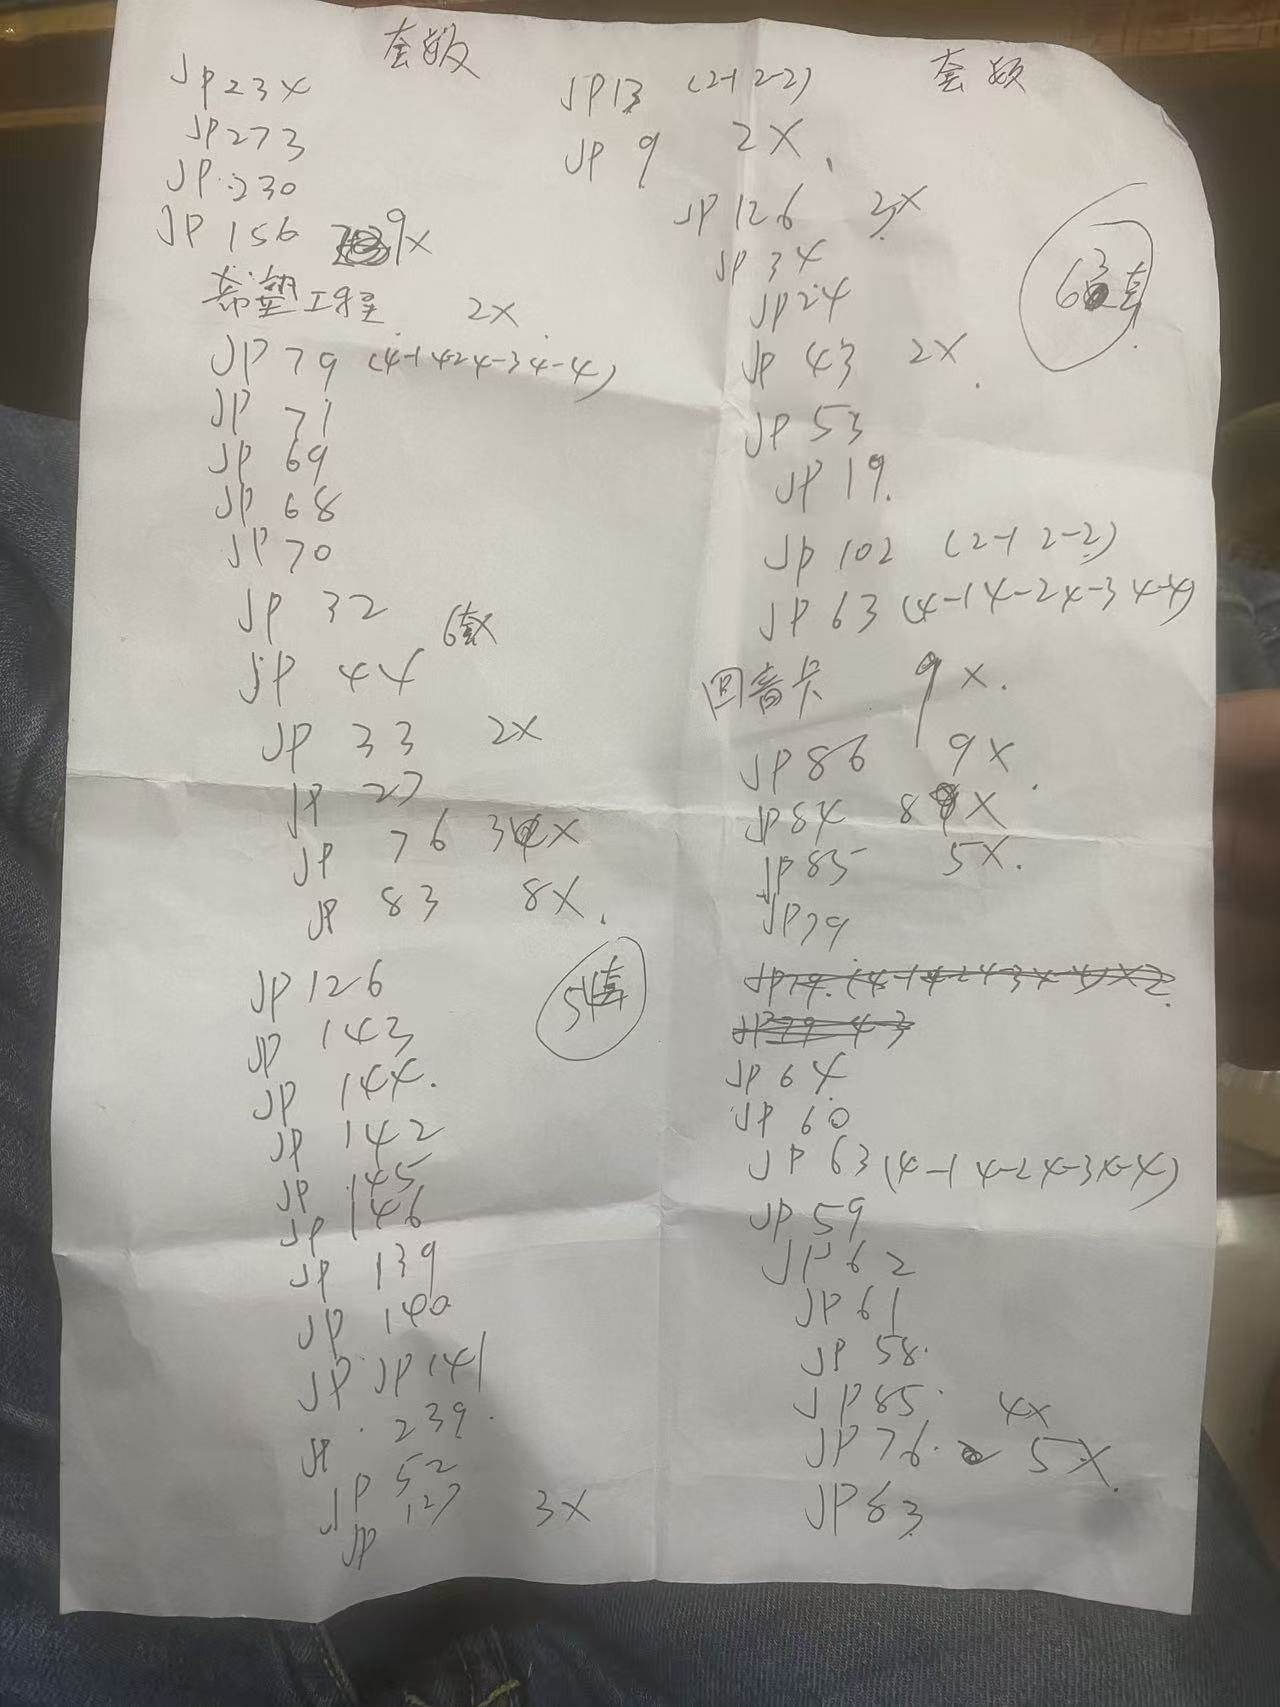 套数
JP234
JP273
JP.230
JP 156 9X
希望工程 2X
JP 79 (4-1 4-2 4-3 4-4)
JP 71
JP 69
JP 68
JP 70
JP 32
6套X
JP 44
JP 33 2X
JP 27
JP 76 3X
JP 83 8X.
54套
JP 126
JP 143
JP 144.
JP 142
JP 145
JP 146
JP 139
JP 140
JP JP141
JP 239.
JP 52
JP 127 3X
套数
JP13 (2-1 2-2)
JP 9 2X
JP 126 3X
63套
JP 34
JP24
JP 43 2X
JP 53
JP 19.
JP 102 (2-1 2-2)
JP 63 (4-1 4-2 4-3 4-4)
回音卡 9X.
JP86 9X
JP84 8X
JP85 5X.
JP79
JP79. (4-1 4-2 4-3 4-4) X2
JP79 4-3
JP 64
JP 60
JP 63 (4-1 4-2 4-3 4-4)
JP 59
JP 62
JP 61
JP 58.
JP 85. 4X
JP 76. 5X
JP 83